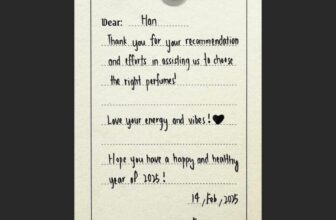 Dear: Han
Thank you for your recommendation
and efforts in assisting us to choose
the right perfumes!
Love your energy and vibes! ♥
Hope you have a happy and healthy
year of 2025!
14, Feb, 2025